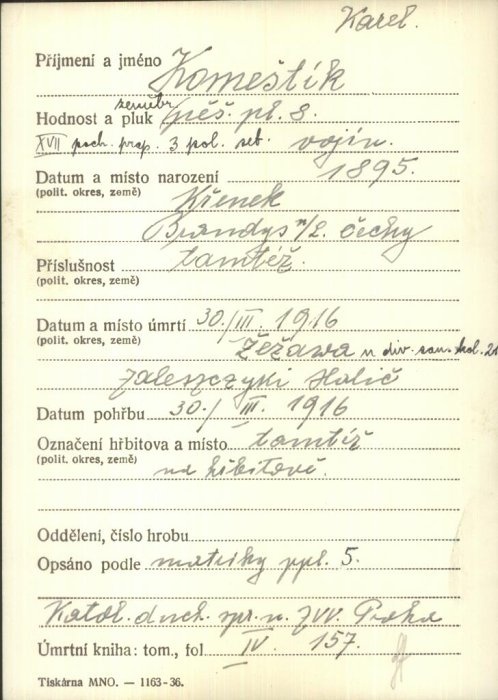 Karel.
Příjmení a jméno Komeštík
zeměbr.
Hodnost a pluk pěš. pl. 8.
XVII poch. prap. 3 pol. set. vojín.
Datum a místo narození 1895.
(polit. okres, země) Křenek
Brandys n/L. Čechy
Příslušnost tamtéž.
(polit. okres, země)
Datum a místo úmrtí 30./III. 1916
(polit. okres, země) Žežawa u div. san. kol. 21
Zaleszczyki Halič
Datum pohřbu 30./III. 1916
Označení hřbitova a místo tamtéž
(polit. okres, země) na hřbitově.
Oddělení, číslo hrobu
Opsáno podle matriky ppl. 5.
Katol. duch. spr. u ZVV. Praha
Úmrtní kniha: tom., fol IV. 157.
Tiskárna MNO. — 1163-36.